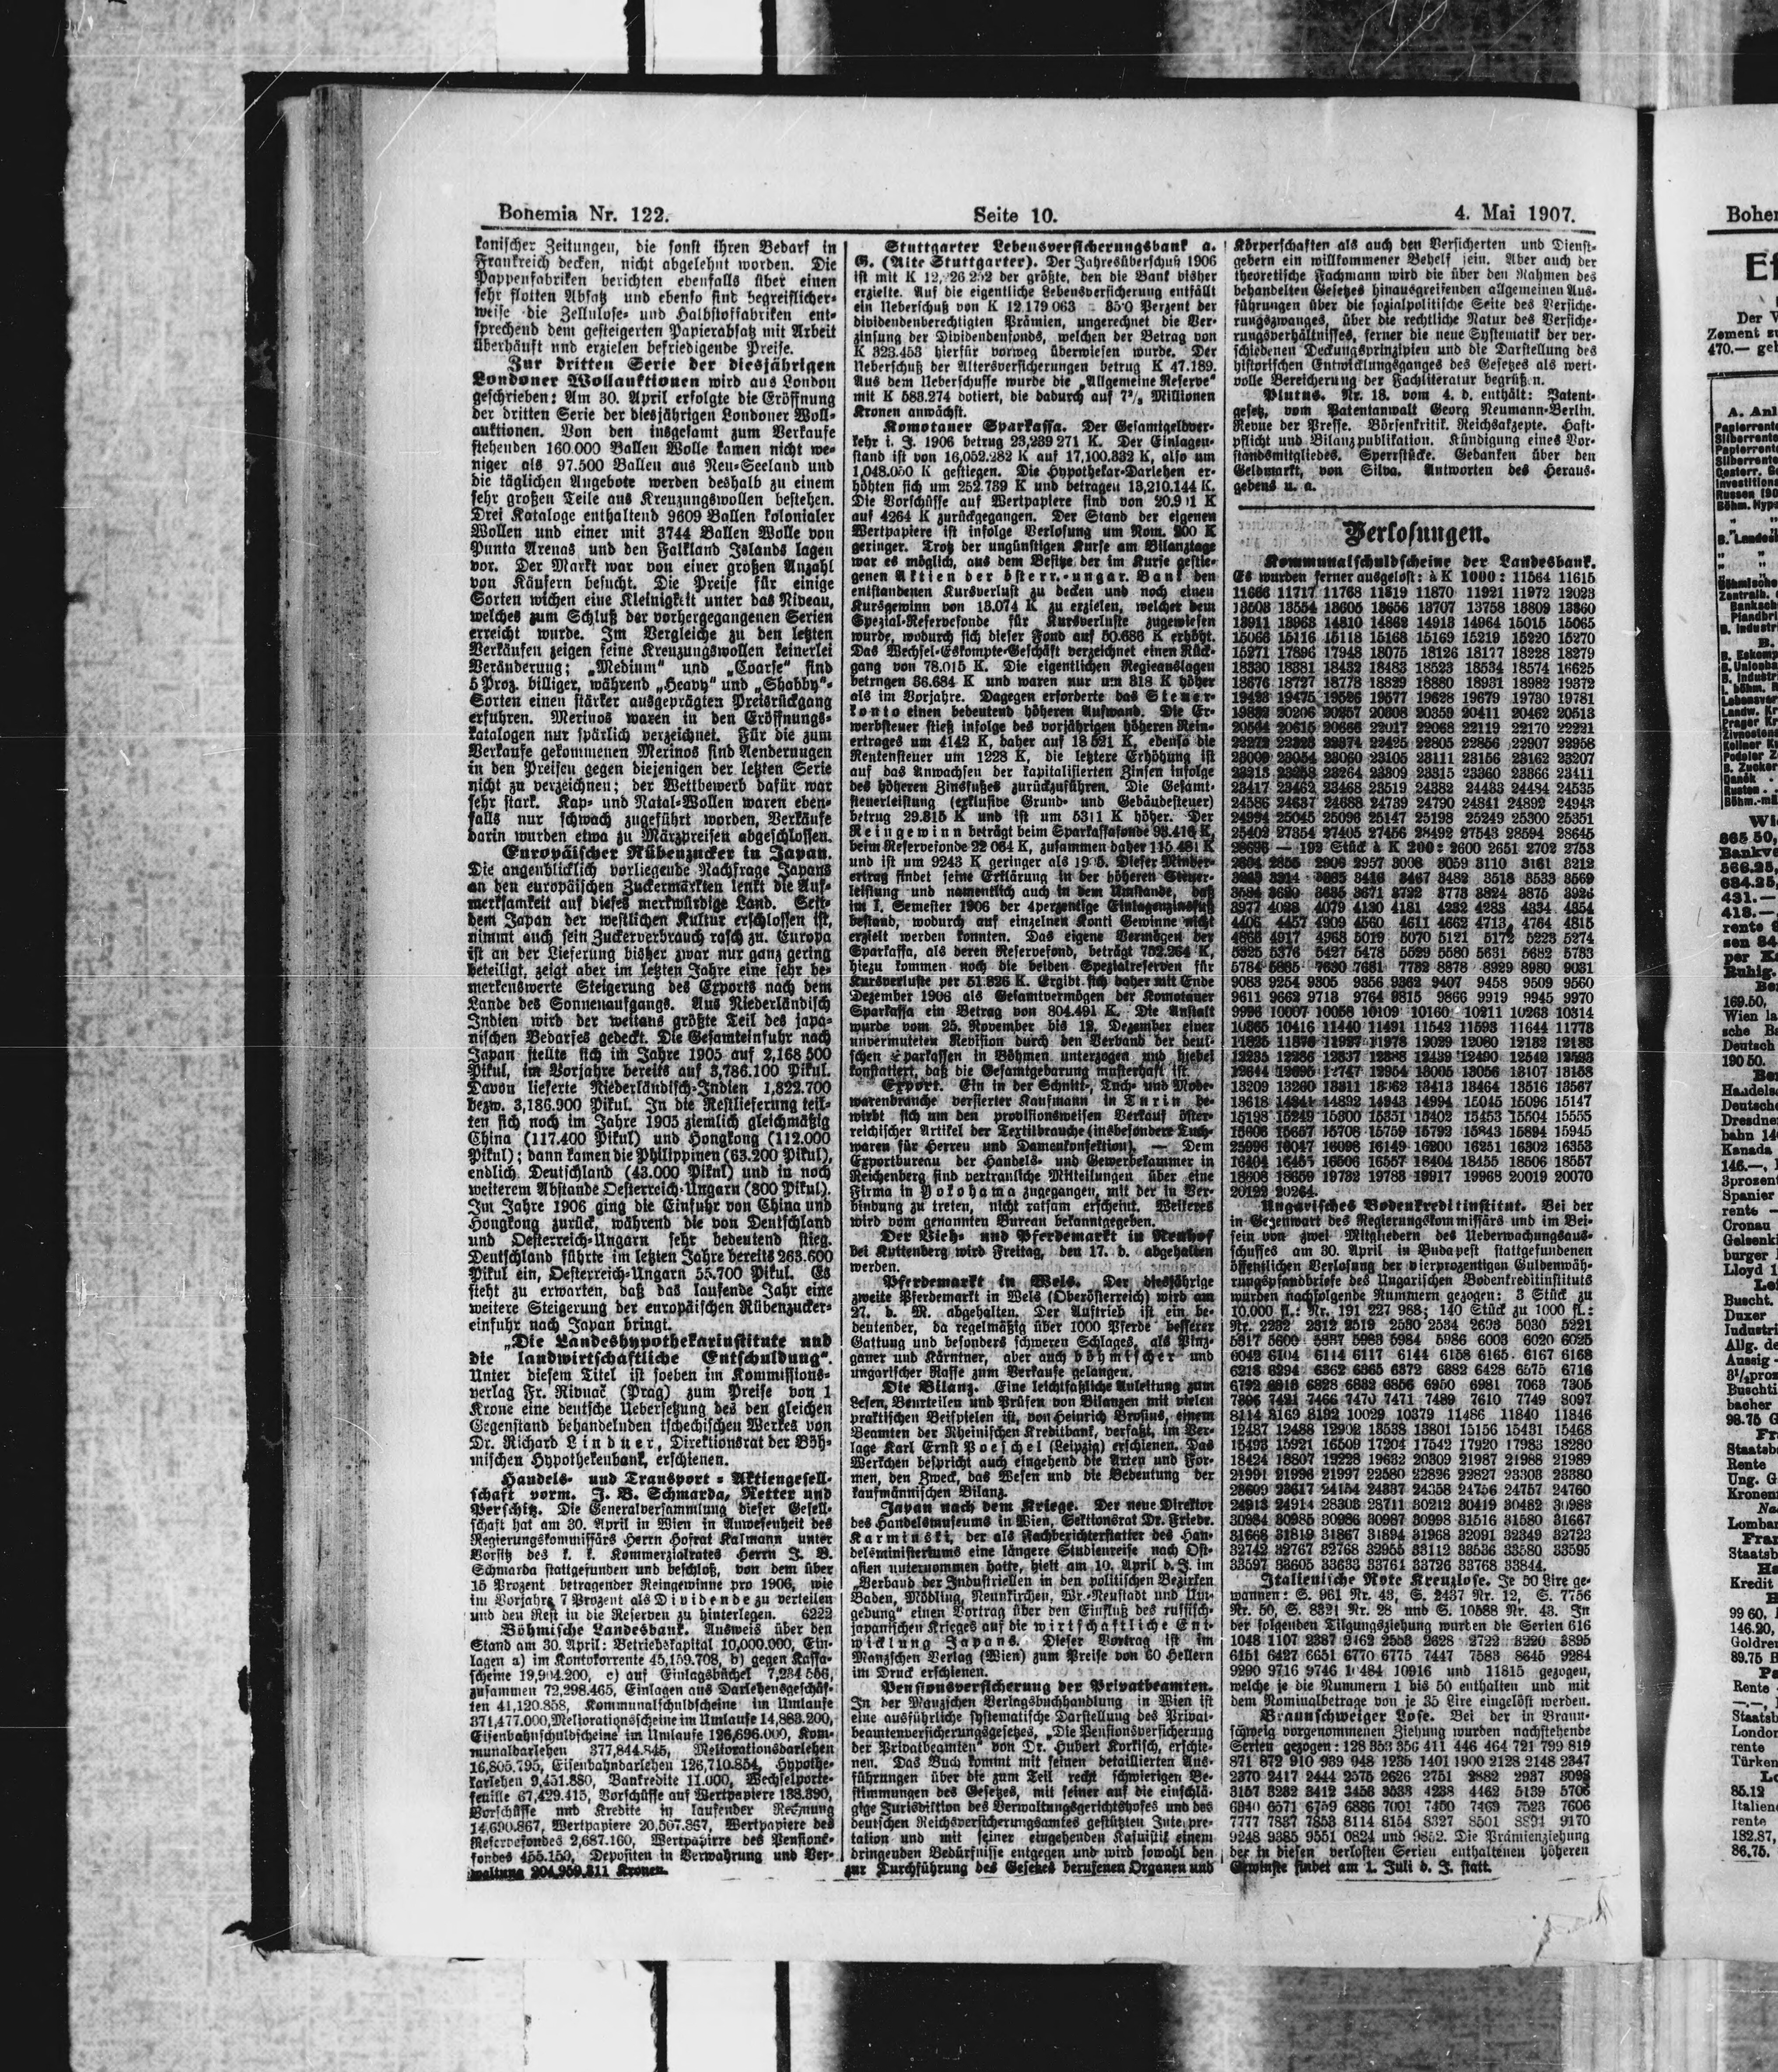 Bohemia Nr. 122.
Seite 10.
4. Mai 1907.
kanischer Zeitungen, die sonst ihren Bedarf in
Frankreich decken, nicht abgelehnt worden. Die
Pappenfabriken berichten ebenfalls über einen
sehr flotten Absatz und ebenso sind begreiflicher-
weise die Zellulose- und Halbstoffabriken ent-
sprechend dem gesteigerten Papierabsatz mit Arbeit
überhäuft und erzielen befriedigende Preise.
Zur dritten Serie der diesjährigen
Londoner Wollauktionen wird aus London
geschrieben: Am 30. April erfolgte die Eröffnung
der dritten Serie der diesjährigen Londoner Woll-
auktionen. Von den insgesamt zum Verkaufe
stehenden 160.000 Ballen Wolle kamen nicht we-
niger als 97.500 Ballen aus Neu-Seeland und
die täglichen Angebote werden deshalb zu einem
sehr großen Teile aus Kreuzungswollen bestehen.
Drei Kataloge enthaltend 9609 Ballen kolonialer
Wollen und einer mit 3744 Ballen Wolle von
Punta Arenas und den Falkland Islands lagen
vor. Der Markt war von einer großen Anzahl
von Käufern besucht. Die Preise für einige
Sorten wichen eine Kleinigkeit unter das Niveau,
welches zum Schluß der vorhergegangenen Serien
erreicht wurde. Im Vergleiche zu den letzten
Verkäufen zeigen feine Kreuzungswollen keinerlei
Veränderung; „Medium“ und „Coarse“ sind
5 Proz. billiger, während „Heavy“ und „Shabby“-
Sorten einen stärker ausgeprägten Preisrückgang
erfuhren. Merinos waren in den Eröffnungs-
katalogen nur spärlich verzeichnet. Für die zum
Verkaufe gekommenen Merinos sind Aenderungen
in den Preisen gegen diejenigen der letzten Serie
nicht zu verzeichnen; der Wettbewerb dafür war
sehr stark. Kap- und Natal-Wollen waren eben-
falls nur schwach zugeführt worden, Verkäufe
darin wurden etwa zu Märzpreisen abgeschlossen.
Europäischer Rübenzucker in Japan.
Die augenblicklich vorliegende Nachfrage Japans
an den europäischen Zuckermärkten lenkt die Auf-
merksamkeit auf dieses merkwürdige Land. Seit-
dem Japan der westlichen Kultur erschlossen ist,
nimmt auch sein Zuckerverbrauch rasch zu. Europa
ist an der Lieferung bisher zwar nur ganz gering
beteiligt, zeigt aber im letzten Jahre eine sehr be-
merkenswerte Steigerung des Exports nach dem
Lande des Sonnenaufgangs. Aus Niederländisch
Indien wird der weitaus größte Teil des japa-
nischen Bedarfes gedeckt. Die Gesamteinfuhr nach
Japan stellte sich im Jahre 1905 auf 2,168 500
Pikul, im Vorjahre bereits auf 3,786.100 Pikul.
Davon lieferte Niederländisch-Indien 1,822.700
bezw. 3,186.900 Pikul. In die Restlieferung teil-
ten sich noch im Jahre 1905 ziemlich gleichmäßig
China (117.400 Pikul) und Hongkong (112.000
Pikul); dann kamen die Philippinen (63.200 Pikul),
endlich Deutschland (43.000 Pikul) und in noch
weiterem Abstande Oesterreich-Ungarn (800 Pikul).
Im Jahre 1906 ging die Einfuhr von China und
Hongkong zurück, während die von Deutschland
und Oesterreich-Ungarn sehr bedeutend stieg.
Deutschland führte im letzten Jahre bereits 263.600
Pikul ein, Oesterreich-Ungarn 55.700 Pikul. Es
steht zu erwarten, daß das laufende Jahr eine
weitere Steigerung der europäischen Rübenzucker-
einfuhr nach Japan bringt.
„Die Landeshypothekarinstitute und
die landwirtschaftliche Entschuldung“.
Unter diesem Titel ist soeben im Kommissions-
verlag Fr. Rivnač (Prag) zum Preise von 1
Krone eine deutsche Uebersetzung des den gleichen
Gegenstand behandelnden tschechischen Werkes von
Dr. Richard Lindner, Direktionsrat der Böh-
mischen Hypothekenbank, erschienen.
Handels- und Transport-Aktiengesell-
schaft vorm. J. B. Schmarda, Rotter und
Perschitz. Die Generalversammlung dieser Gesell-
schaft hat am 30. April in Wien in Anwesenheit des
Regierungskommissärs Herrn Hofrat Kalmann unter
Vorsitz des k. k. Kommerzialrates Herrn J. B.
Schmarda stattgefunden und beschloß, von dem über
15 Prozent betragender Reingewinne pro 1906, wie
im Vorjahre 7 Prozent als Dividende zu verteilen
und den Rest in die Reserven zu hinterlegen. 6222
Böhmische Landesbank. Ausweis über den
Stand am 30. April: Betriebskapital 10,000.000, Ein-
lagen a) im Kontokorrente 45,159.708, b) gegen Kassa-
scheine 19,904.200, c) auf Einlagsbüchel 7,234 556,
zusammen 72,298.465, Einlagen aus Darlehensgeschäf-
ten 41,120.858, Kommunalschuldscheine im Umlaufe
371,477.000, Meliorationsscheine im Umlaufe 14,883.200,
Eisenbahnschuldscheine im Umlaufe 126,696.000, Kom-
munaldarlehen 377,844.845, Meliorationsdarlehen
16,805.795, Eisenbahndarlehen 126,710.854, Hypothe-
karlehen 9,451.880, Bankredite 11.000, Wechselporte-
feuille 67,429.415, Vorschüsse auf Wertpapiere 188.390,
Vorschüsse und Kredite in laufender Rechnung
14,690.867, Wertpapiere 20,507.367, Wertpapiere des
Reservefondes 2,687.160, Wertpapirre des Pensions-
fondes 455.150, Depositen in Verwahrung und Ver-
waltung 204,959.311 Kronen.
Stuttgarter Lebensversicherungsbank a.
G. (Alte Stuttgarter). Der Jahresüberschuß 1906
ist mit K der größte, den die Bank bisher
erzielte. Auf die eigentliche Lebensversicherung entfällt
ein Ueberschuß von K 12.179 063 Perzent der
dividendenberechtigten Prämien, ungerechnet die Ver-
zinsung der Dividendenfonds, welchen der Betrag von
K 323.453 hierfür vorweg überwiesen wurde. Der
Ueberschuß der Altersversicherungen betrug K 47.189.
Aus dem Ueberschusse wurde die „Allgemeine Reserve“
mit K 583.274 dotiert, die dadurch auf Millionen
Kronen anwächst.
Komotauer Sparkassa. Der Gesamtgeldver-
kehr i. J. 1906 betrug 23,239 271 K. Der Einlagen-
stand ist von 16,052.282 K auf 17,100.332 K, also um
1,048.050 K gestiegen. Die Hypothekar-Darlehen er-
höhten sich um 252.739 K und betragen 13,210.144 K.
Die Vorschüsse auf Wertpapiere sind von K
auf 4264 K zurückgegangen. Der Stand der eigenen
Wertpapiere ist infolge Verlosung um Nom. 200 K
geringer. Trotz der ungünstigen Kurse am Bilanztage
war es möglich, aus dem Besitze der im Kurse gestie-
genen Aktien der österr.-ungar. Bank den
entstandenen Kursverlust zu decken und noch einen
Kursgewinn von 13.074 K zu erzielen, welcher dem
Spezial-Reservefonde für Kursverluste zugewiesen
wurde, wodurch sich dieser Fond auf 50.686 K erhöht.
Das Wechsel-Eskompte-Geschäft verzeichnet einen Rück-
gang von 78.015 K. Die eigentlichen Regieauslagen
betrugen 36.684 K und waren nur um 318 K höher
als im Vorjahre. Dagegen erforderte das Steuer-
konto einen bedeutend höheren Aufwand. Die Er-
werbsteuer stieß infolge des vorjährigen höheren Rein-
ertrages um 4142 K, daher auf 18 521 K, ebenso die
Rentensteuer um 1228 K, die letztere Erhöhung ist
auf das Anwachsen der kapitalisierten Zinsen infolge
des höheren Zinsfußes zurückzuführen. Die Gesamt-
steuerleistung (exklusive Grund- und Gebäudesteuer)
betrug 29.815 K und ist um 5311 K höher. Der
Reingewinn beträgt beim Sparkassafonde 93.416 K,
beim Reservefonde 22 064 K, zusammen daher 115.481 K
und ist um 9243 K geringer als Dieser Minder-
ertrag findet seine Erklärung in der höheren Steuer-
leistung und namentlich auch in dem Umstande, daß
im I. Semester 1906 der 4perzentige Einlagenzinsfuß
bestand, wodurch auf einzelnen Konti Gewinne nicht
erzielt werden konnten. Das eigene Vermögen der
Sparkassa, als deren Reservefond, beträgt 752.264 K,
hiezu kommen noch die beiden Spezialreserven für
Kursverluste per 51.826 K. Ergibt sich daher mit Ende
Dezember 1906 als Gesamtvermögen der Komotauer
Sparkassa ein Betrag von 804.491 K. Die Anstalt
wurde vom 25. November bis 12. Dezember einer
unvermuteten Revision durch den Verband der deut-
schen Sparkassen in Böhmen unterzogen und hiebei
konstatiert, daß die Gesamtgebarung musterhaft ist.
Export. Ein in der Schnitt-, Tuch- und Mode-
warenbranche versierter Kaufmann in Turin be-
wirbt sich um den provisionsweisen Verkauf öster-
reichischer Artikel der Textilbrauche (insbesondere Tuch-
waren für Herren und Damenkonfektion). — Dem
Exportbureau der Handels- und Gewerbekammer in
Reichenberg sind vertrauliche Mitteilungen über eine
Firma in Yokohama zugegangen, mit der in Ver-
bindung zu treten, nicht ratsam erscheint. Weiteres
wird vom genannten Bureau bekanntgegeben.
Der Vieh- und Pferdemarkt in Neuhof
bei Kuttenberg wird Freitag, den 17. d. abgehalten
werden.
Pferdemarkt in Wels. Der diesjährige
zweite Pferdemarkt in Wels (Oberösterreich) wird am
27. d. M. abgehalten. Der Auftrieb ist ein be-
deutender, da regelmäßig über 1000 Pferde besserer
Gattung und besonders schweren Schlages, als Pinz-
gauer und Kärntner, aber auch böhmischer und
ungarischer Rasse zum Verkaufe gelangen.
Die Bilanz. Eine leichtfaßliche Anleitung zum
Lesen, Beurteilen und Prüfen von Bilanzen mit vielen
praktischen Beispielen ist, von Heinrich Brosius, einem
Beamten der Rheinischen Kreditbank, verfaßt, im Ver-
lage Karl Ernst Poeschel (Leipzig) erschienen. Das
Werkchen bespricht auch eingehend die Arten und For-
men, den Zweck, das Wesen und die Bedeutung der
kaufmännischen Bilanz.
Japan nach dem Kriege. Der neue Direktor
des Handelsmuseums in Wien, Sektionsrat Dr. Friedr.
Karminski, der als Fachberichterstatter des Han-
delsministeriums eine längere Studienreise nach Ost-
asien unternommen hatte, hielt am 10. April d. J. im
„Verband der Industriellen in den politischen Bezirken
Baden, Mödling, Neunkirchen, Wr.-Neustadt und Um-
gebung“ einen Vortrag über den Einfluß des russisch-
japanischen Krieges auf die wirtschaftliche Ent-
wicklung Japans. Dieser Vortrag ist im
Manzschen Verlag (Wien) zum Preise von 60 Hellern
im Druck erschienen.
Pensionsversicherung der Privatbeamten.
In der Manzschen Verlagsbuchhandlung in Wien ist
eine ausführliche systematische Darstellung des Privat-
beamtenversicherungsgesetzes, „Die Pensionsversicherung
der Privatbeamten“ von Dr. Hubert Korkisch, erschie-
nen. Das Buch kommt mit seinen detaillierten Aus-
führungen über die zum Teil recht schwierigen Be-
stimmungen des Gesetzes, mit seiner auf die einschlä-
gige Jurisdiktion des Verwaltungsgerichtshofes und des
deutschen Reichsversicherungsamtes gestützten Interpre-
tation und mit seiner eingehenden Kasuistik einem
dringenden Bedürfnisse entgegen und wird sowohl den
zur Durchführung des Gesetzes berufenen Organen und
Körperschaften als auch den Versicherten und Dienst-
gebern ein willkommener Behelf sein. Aber auch der
theoretische Fachmann wird die über den Rahmen des
behandelten Gesetzes hinausgreifenden allgemeinen Aus-
führungen über die sozialpolitische Seite des Versiche-
rungszwanges, über die rechtliche Natur des Versiche-
rungsverhältnisses, ferner die neue Systematik der ver-
schiedenen Deckungsprinzipien und die Darstellung des
historischen Entwicklungsganges des Gesetzes als wert-
volle Bereicherung der Fachliteratur begrüßen.
Plutus. Nr. 18. vom 4. d. enthält: Patent-
gesetz, vom Patentanwalt Georg Neumann-Berlin.
Revue der Presse. Börsenkritik. Reichsakzepte. Haft-
pflicht und Bilanzpublikation. Kündigung eines Vor-
standsmitgliedes. Sperrstücke. Gedanken über den
Geldmarkt, von Silva. Antworten des Heraus-
gebens u. a.
Verlosungen.
Kommunalschuldscheine der Landesbank.
Es wurden ferner ausgelost: à K 1000: 11564 11615
11666 11717 11768 11819 11870 11921 11972 12023
13503 13554 13605 13656 13707 13758 13809 13860
13911 13963 14810 14862 14913 14964 15015 15065
15066 15116 15118 15168 15169 15219 15220 15270
15271 17896 17948 18075 18126 18177 18228 18279
18330 18381 18432 18483 18523 18534 18574 16625
18676 18727 18778 18829 18880 18931 18982 19372
19423 19475 19526 19577 19628 19679 19730 19781
19832 20206 20257 20308 20359 20411 20462 20513
20564 20615 20666 22017 22068 22119 22170 22221
22272 22323 22374 22425 22805 22856 22907 22958
23009 23054 23060 23105 23111 23156 23162 23207
23213 23258 23264 23309 23315 23360 23366 23411
23417 23462 23468 23519 24382 24433 24484 24535
24586 24637 24688 24739 24790 24841 24892 24943
24994 25045 25096 25147 25198 25249 25300 25351
25402 27354 27405 27456 28492 27543 28594 28645
28696 — 192 Stück à K 200: 2600 2651 2702 2753
2804 2855 2906 2957 3008 3059 3110 3161 3212
3263 3314 3365 3416 3467 3482 3518 3533 3569
3584 3620 3635 3671 3722 3773 3824 3875 3926
3977 4028 4079 4130 4181 4232 4283 4334 4354
4406 4457 4509 4560 4611 4662 4713 4764 4815
4866 4917 4968 5019 5070 5121 5172 5223 5274
5325 5376 5427 5478 5529 5580 5631 5682 5733
5784 5835 7630 7681 7732 8878 8929 8980 9031
9083 9254 9305 9356 9362 9407 9458 9509 9560
9611 9662 9713 9764 9815 9866 9919 9945 9970
9996 10007 10058 10109 10160 10211 10263 10314
10365 10416 11440 11491 11542 11593 11644 11773
11825 11876 11927 11978 12029 12080 12132 12183
12235 12286 12337 12388 12439 12490 12542 12593
12644 12695 12747 12954 13005 13056 13107 13158
13209 13260 13311 13362 13413 13464 13516 13567
13618 14841 14892 14943 14994 15045 15096 15147
15198 15249 15300 15351 15402 15453 15504 15555
15606 15657 15708 15759 15792 15843 15894 15945
25996 16047 16098 16149 16200 16251 16302 16353
16404 16455 16506 16557 18404 18455 18506 18557
18608 18659 19732 19783 19917 19968 20019 20070
20122 20264.
Ungarisches Bodenkreditinstitut. Bei der
in Gegenwart des Regierungskommissärs und im Bei-
sein von zwei Mitgliedern des Ueberwachungsaus-
schusses am 30. April in Budapest stattgefundenen
öffentlichen Verlosung der vierprozentigen Guldenwäh-
rungspfandbriefe des Ungarischen Bodenkreditinstituts
wurden nachfolgende Nummern gezogen: 3 Stück zu
10,000 fl.: Nr. 191 227 988; 140 Stück zu 1000 fl.:
Nr. 2232 2312 2519 2530 2534 2693 5030 5221
5317 5600 5837 5983 5984 5986 6003 6020 6025
6042 6104 6114 6117 6144 6158 6165 6167 6168
6218 6294 6362 6365 6372 6382 6428 6575 6716
6792 6813 6828 6832 6856 6950 6981 7063 7305
7396 7421 7466 7470 7471 7489 7610 7749 8097
8114 8169 8192 10029 10379 11486 11840 11846
12487 12488 12902 13538 13801 15156 15431 15468
15493 15921 16509 17204 17542 17920 17983 18280
18424 18807 19228 19632 20309 21987 21988 21989
21991 21996 21997 22580 22826 22827 23303 23380
23609 23617 24154 24337 24358 24756 24757 24760
24913 24914 28303 28711 30212 30419 30482 30983
30984 30985 30986 30987 30998 31516 31580 31667
31668 31819 31867 31894 31968 32091 32349 32723
32742 32767 32768 32955 33112 33536 33580 33595
33597 33605 33633 33761 33726 33768 33844.
Italienische Rote Kreuzlose. Je 50 Lire ge-
wannen: S. 961 Nr. 43, S. 2437 Nr. 12, S. 7756
Nr. 50, S. 8321 Nr. 28 und S. 10588 Nr. 43. In
der folgenden Tilgungsziehung wurden die Serien 616
1048 1107 2387 2462 2553 2628 2722 3220 3895
6151 6427 6651 6770 6775 7447 7583 8645 9284
9290 9716 9746 10484 10916 und 11815 gezogen,
welche je die Nummern 1 bis 50 enthalten und mit
dem Nominalbetrage von je 35 Lire eingelöst werden.
Braunschweiger Lose. Bei der in Braun-
schweig vorgenommenen Ziehung wurden nachstehende
Serien gezogen: 128 353 356 411 446 464 721 799 819
871 872 910 939 948 1235 1401 1900 2128 2148 2347
2370 2417 2444 2575 2626 2751 2882 2937 3098
3157 3232 3412 3456 3533 4238 4462 5139 5706
6340 6571 6759 6886 7001 7450 7469 7523 7606
7777 7837 7853 8114 8154 8327 8501 8894 9170
9248 9385 9551 0824 und 9852. Die Prämienziehung
der in diesen verlosten Serien enthaltenen höheren
Gewinste findet am 1. Juli d. J. statt.